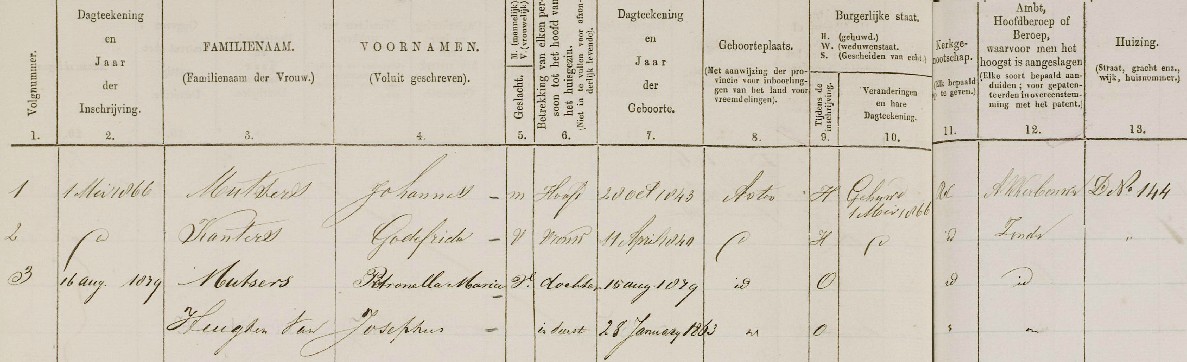 Volgnummer.
1.
Dagteekening
en
Jaar
der
Inschrijving.
2.
FAMILIENAAM.
(Familienaam der Vrouw.)
3.
VOORNAMEN.
(Voluit geschreven).
4.
Geslacht. M. (mannelijk) V (vrouwelijk).
5.
Betrekking van elken per-
soon tot het hoofd van
het huisgezin.
(Niet in te vullen voor afzon-
derlijk levende).
6.
Dagteekening
en
Jaar
der
Geboorte.
7.
Geboorteplaats.
(Met aanwijzing der pro-
vincie voor inboorlin-
gen van het land voor
vreemdelingen).
8.
Burgerlijke staat.
H. (gehuwd.)
W. (weduwenstaat.
S. (Gescheiden van echt.)
Tijdens de
inschrijving.
9.
Veranderingen
en hare
Dagteekening.
10.
Kerkge-
nootschap.
11.
Ambt,
Hoofdberoep of
Beroep,
waarvoor men het
hoogst is aangeslagen
(Elke soort bepaald aan-
duiden; voor gepaten-
teerden in overeenstem-
ming met het patent.)
12.
Huizing.
(Straat, gracht enz.,
wijk, huisnummer.)
13.
1 1 Mei 1866 Mutsers Johannes - m Hoofd 28 oct 1843 Asten H Gehuwd 1 Mei 1866 RC Akkerbouwer D No 144
2 Kanters Godefrida - V Vrouw 11 April 1840 H id
3 16 aug. 1879 Mutsers Petronella Maria Vr dochter 15 aug 1879 id O id id
Heugten Van Josephus - 28 January 1863 O